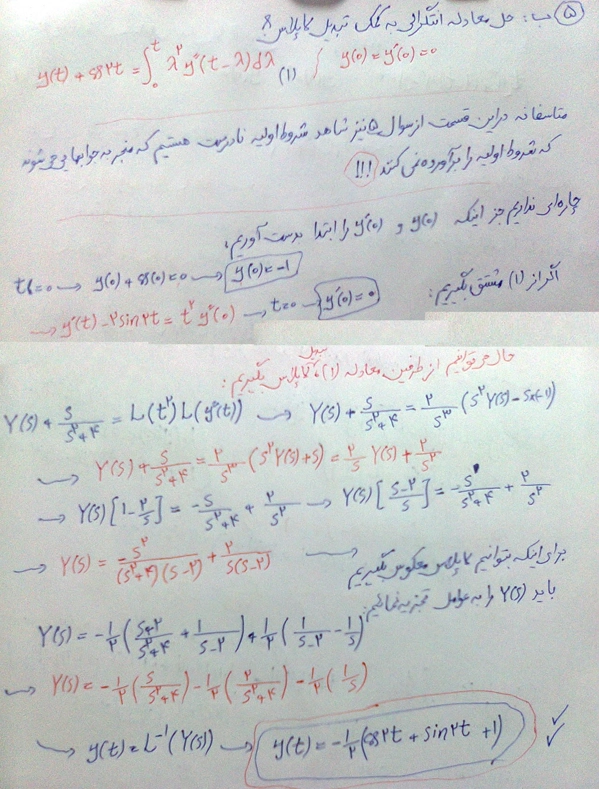 ۵ ب: حل معادله انتگرالی به کمک تبدیل لاپلاس:
y(t) + cos۲t = ∫₀ᵗ λ^۲ y″(t-λ)dλ (۱) { y(0) = y′(0) = 0
متاسفانه در این قسمت از سوال ۵ نیز شاهد شروط اولیه نادرست هستیم که منجر به جوابهایی می شوند
که شروط اولیه را برآورده نمی کنند !!!
چاره‌ای نداریم جز اینکه y(0) و y′(0) را ابتدا بدست آوریم:
t=0 → y(0) + cos(0) = 0 → y(0) = -1
اگر از (۱) مشتق بگیریم:
→ y′(t) - ۲sin۲t = t^۲ y″(0) → t=0 → y′(0) = 0
حال می توانیم از طرفین معادله (۱) تبدیل لاپلاس بگیریم:
Y(s) + s/(s^۲+۴) = L(t^۲) L(y″(t)) → Y(s) + s/(s^۲+۴) = ۲/s^۳ (s^۲Y(s) - s×(-1))
→ Y(s) + s/(s^۲+۴) = ۲/s^۳ (s^۲Y(s) + s) = ۲/s Y(s) + ۲/s^۲
→ Y(s)[1 - ۲/s] = -s/(s^۲+۴) + ۲/s^۲ → Y(s)[(s-۲)/s] = -s/(s^۲+۴) + ۲/s^۲
→ Y(s) = -s^۲/((s^۲+۴)(s-۲)) + ۲/(s(s-۲)) →
برای اینکه بتوانیم لاپلاس معکوس بگیریم
باید Y(s) را به عوامل تجزیه نمائیم:
Y(s) = -1/۲ ((s+۲)/(s^۲+۴) + 1/(s-۲)) + 1/۲ (1/(s-۲) - 1/s)
→ Y(s) = -1/۲ (s/(s^۲+۴)) - 1/۲ (۲/(s^۲+۴)) - 1/۲ (1/s)
→ y(t) = L⁻¹(Y(s)) → y(t) = -1/۲ (cos۲t + sin۲t + 1) ✓✓